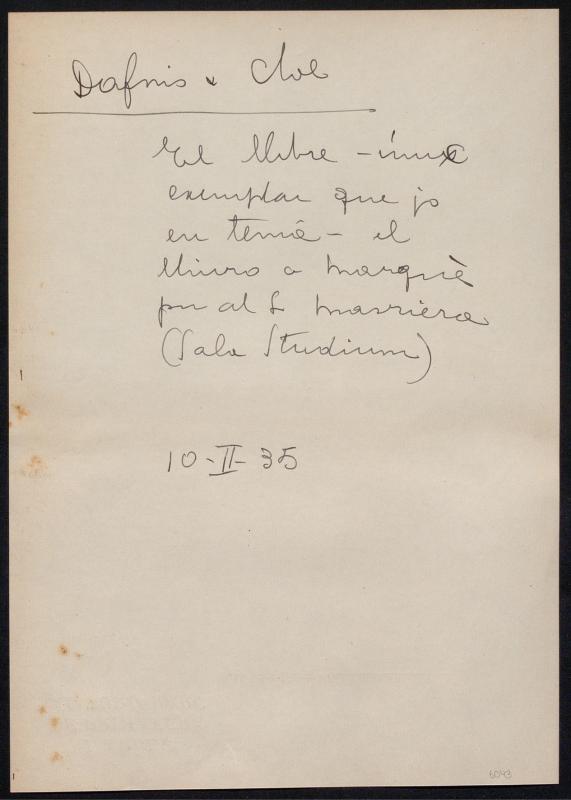 Dafnis & Cloe
El llibre - únic
exemplar que jo
en tenia - el
lliuro a Marquè
per al S. Masriera
(Sala Studium)
10-II-35
6043